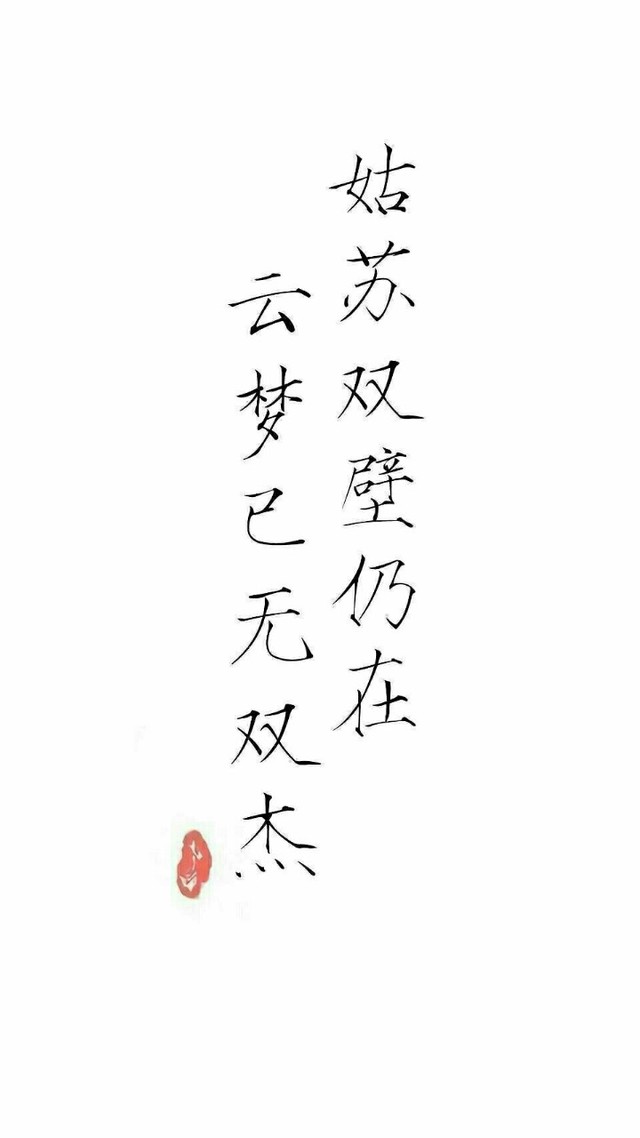 姑苏双壁仍在
云梦已无双杰